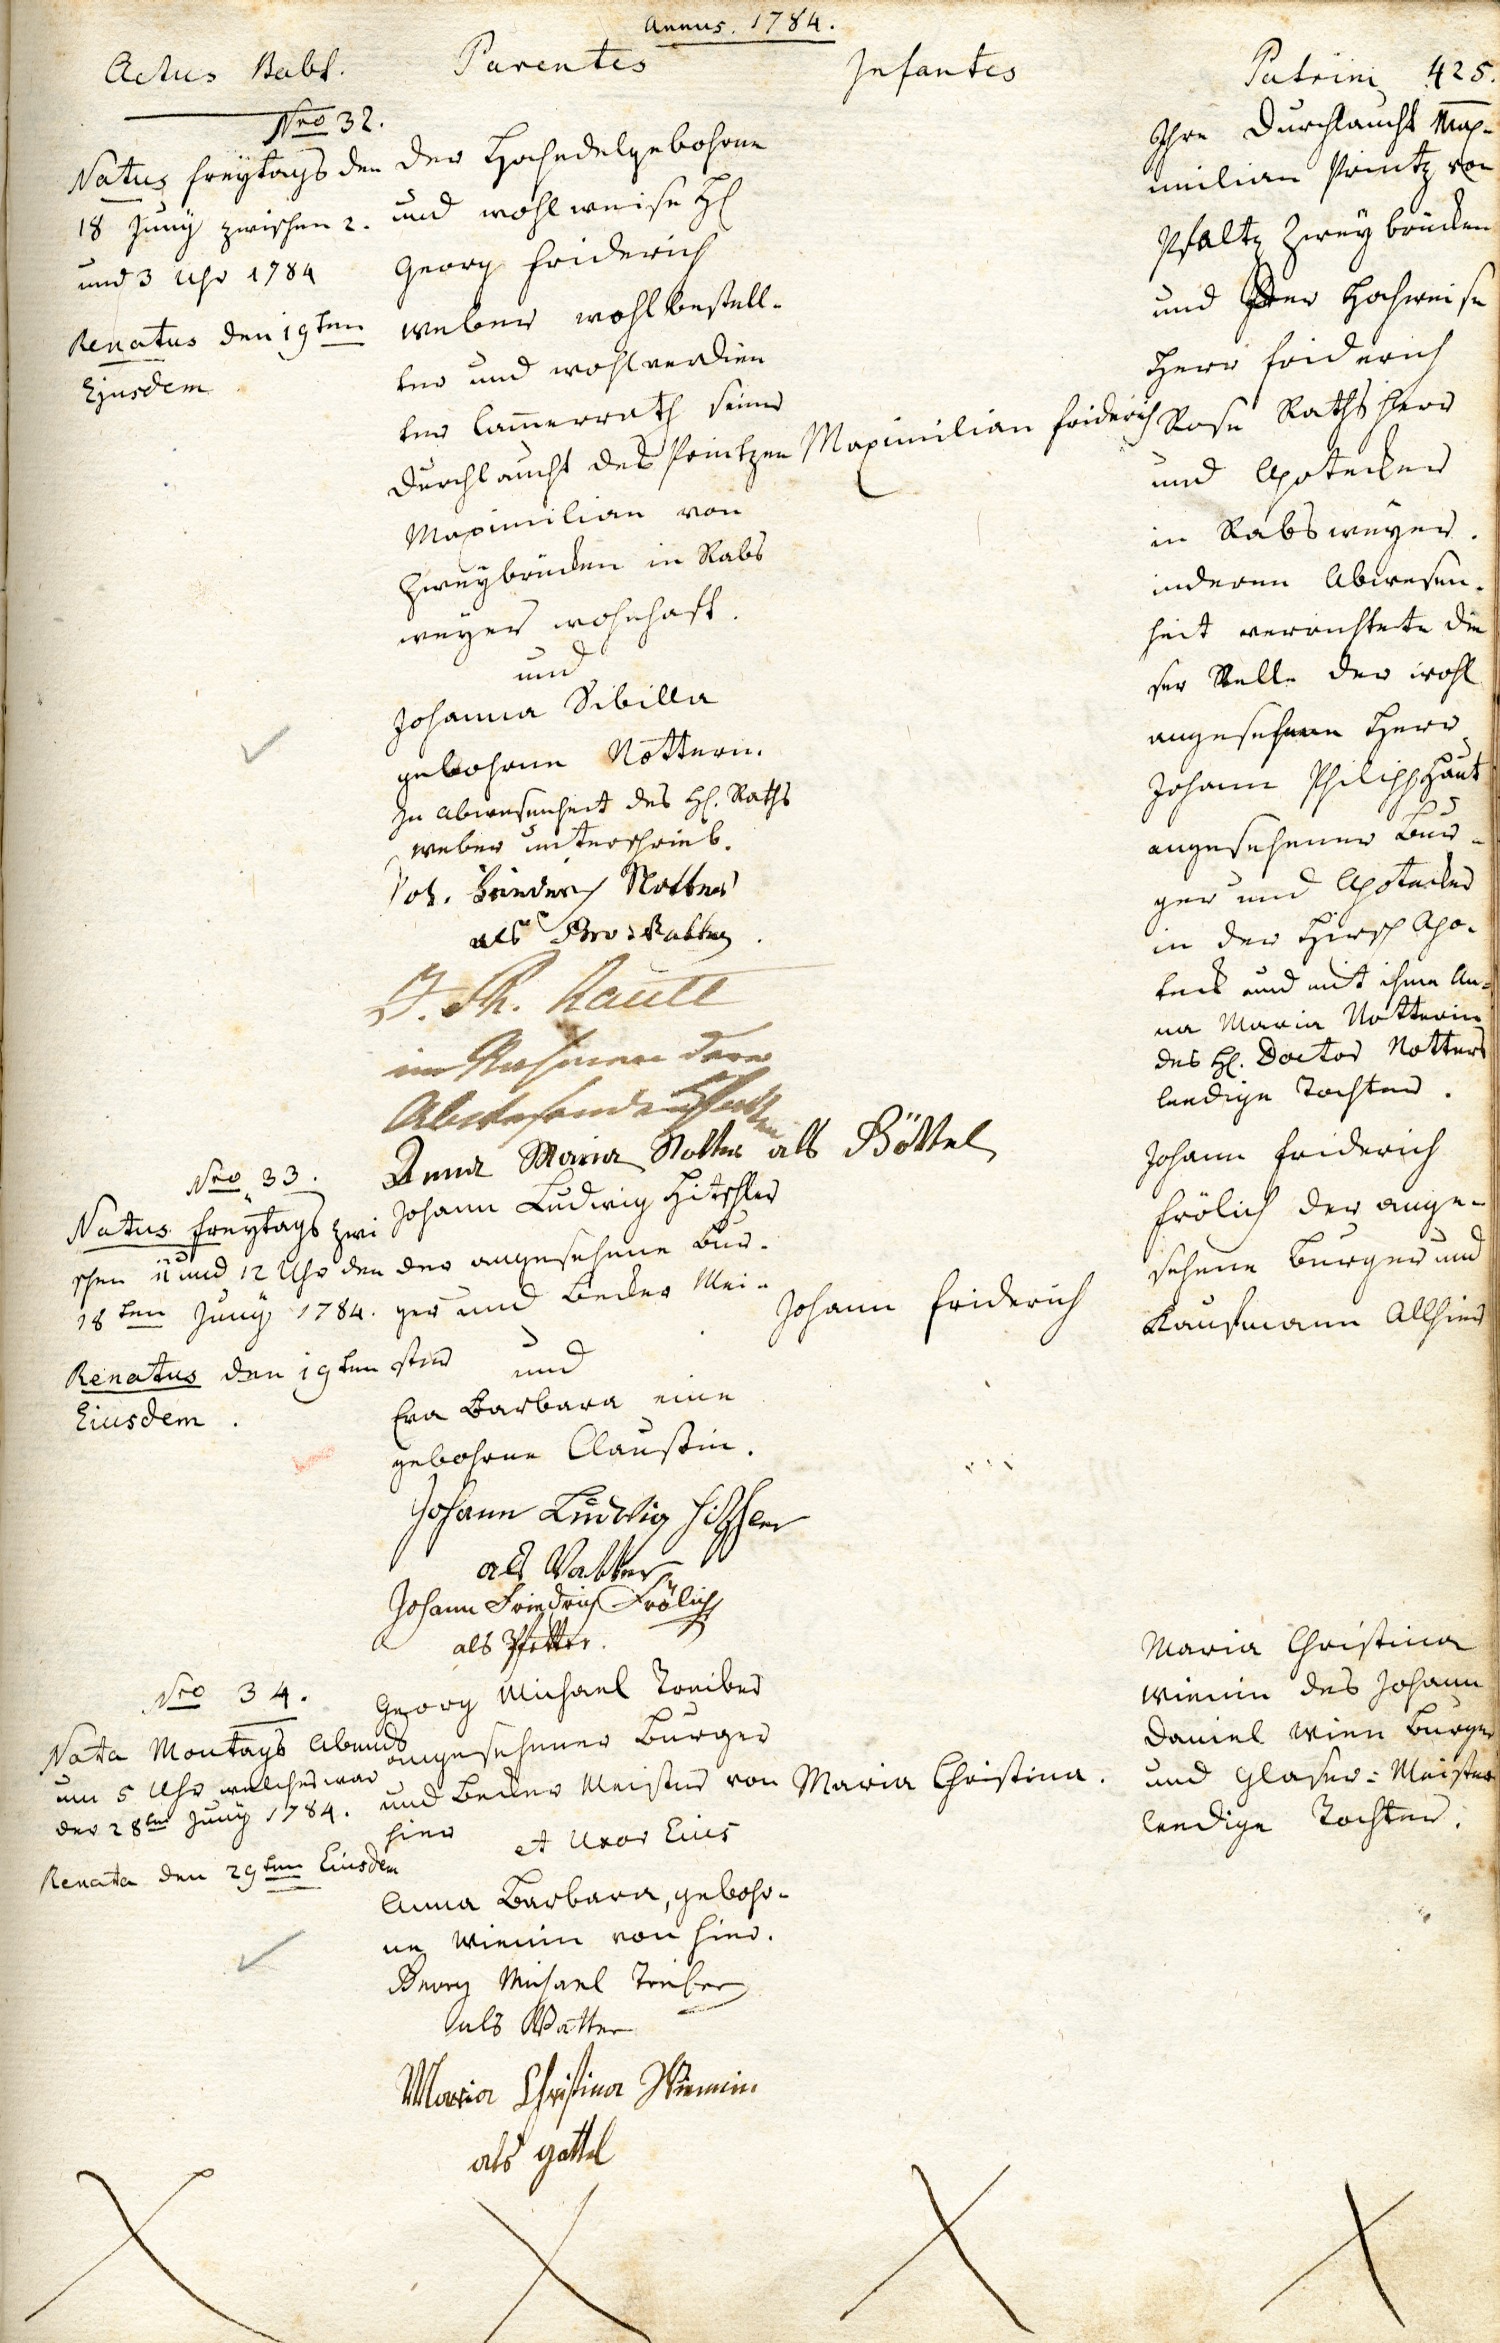 Annus. 1784.
Actus Babt. Parentes Infantes Patrini 425.
Nro 32.
Natus freÿtags den
18 Junÿ zwischen 2.
und 3 Uhr 1784
Renatus den 19ten
Ejusdem
der Hochedelgebohrne
und wohlweise H
Georg friderich
weber wohlbestell-
ter und wohlverdien
ter Cammerrath seiner
Durchlaucht des Printzen
Maximilian von
Zweÿbrücken in Rabs
weÿer wohnhaft.
und
Johanna Sibilla
gebohrne Nottern.
In abwesenheit des H. Raths
weber unterschrieb.
Joh. Friderich Notter
als Gros Vatter.
J. Ph. Haütt
im Nahmen derer
Abwesenden
Anna Maria Notter als Göttel
Maximilian friderich
Ihre Durchlaucht Max-
milian Printz von
Pfaltz Zweÿbrücken
und der Hochweise
Herr friderich
Rose Raths Herr
und Apotecker
in Rabsweÿer.
in deren Abwesen-
heit verrichtete die
ser Stelle der wohl
angesehene Herr
Johann Philipp Haut
angesehener Bur-
ger und Apotecker
in der Hirsch Apo-
teck und mit ihme An-
na Maria Notterin
des H. Doctor Notters
leedige Tochter.
Nro 33.
Natus freytags zwi
schen 11 und 12 Uhr den
18ten Junÿ 1784.
Renatus den 19ten
Eiusdem.
Johann Ludwig Hitschler
der angesehene Bur-
ger und Becker Mei-
ster und
Eva Barbara eine
gebohrne Claußin.
Johann Ludwig Hitschler
als Vatter
Johann Friedrich Frölich
als Pfetter.
Johann friderich
Johann friderich
frölich der ange-
sehene Burger und
Kaufmann Allhier
Nro 34.
Nata Montags Abends
um 5 Uhr welches war
der 28ten Junÿ 1784.
Renata den 29ten Eiusdem
Georg Michael Treiber
angesehener Burger
und Becker Meister von
hier et Uxor Eius
Anna Barbara, gebohr-
ne Wienin von hier.
Georg Michael Treiber
als Vatter
Maria Christina Wienin
als gottel
Maria Christina.
Maria Christina
Wienin des Johann
Daniel Wien Burger
und Glaser-Meister
leedige Tochter.